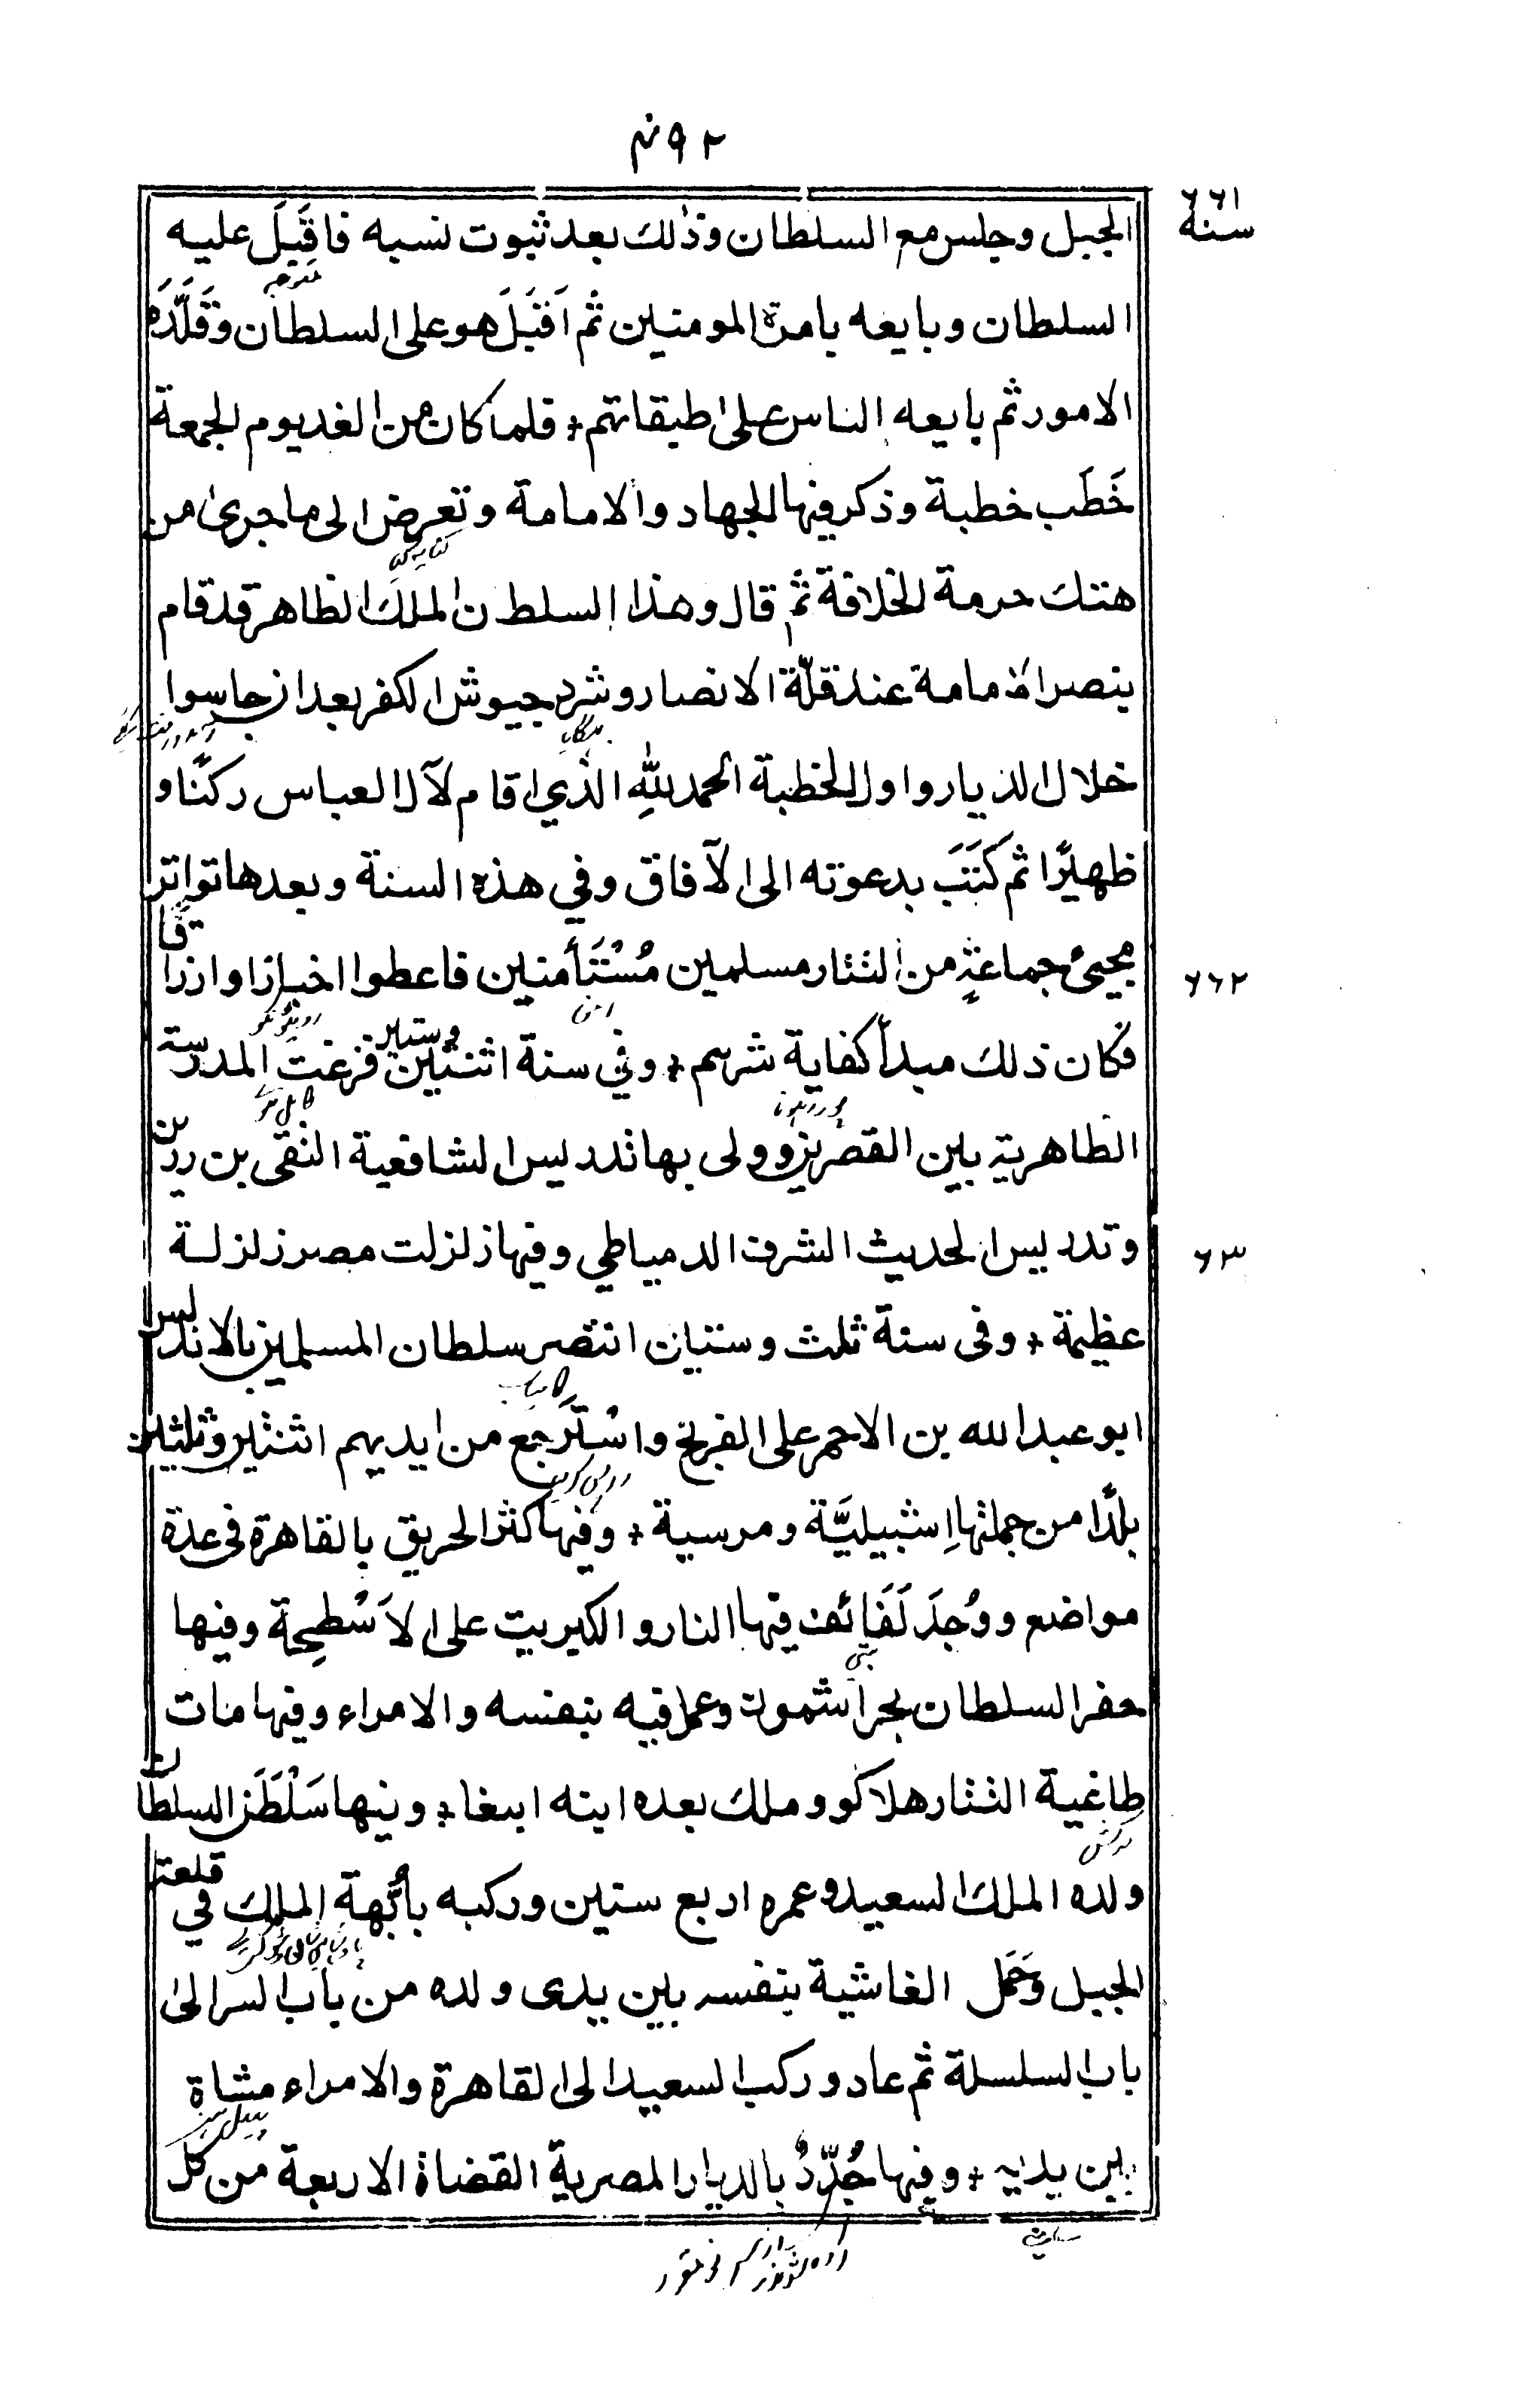 ۴۹۲
سنة ۶۶۱
الجبل وجلس مع السلطان وذلك بعد ثبوت نسبه فاقْبَلَ عليه
السلطان وبايعه بامرة المومنين ثم اَقْبَلَ هو على السلطان وقَلَّدَه
الامور ثم بايعه الناس على طبقاتهم + فلما كان من الغد يوم الجمعة
خَطَب خطبة وذكر فيها الجهاد والامامة وتعرض الى ما جرى من
هتك حرمة الخلافة ثم قال وهذا السلطان الملك الظاهر قد قام
بنصر الامامة عند قلّة الانصار وشرد جيوش الكفر بعد ان جاسوا
خلال الديار واول الخطبة الحمد للهِ الذي اقام لآل العباس ركنًا و
ظهيرًا ثم كَتَبَ بدعوته الى الآفاق وفي هذه السنة وبعدها تواتر
مجيئ جماعةٍ من التتار مسلمين مُسْتَأمنين فاعطوا اخبازا وارزاقا
۶۶۲
فكان ذلك مبدأ كفاية شرهم + وفي سنة اثنتين وستين فرغت المدرسة
الظاهرية بين القصرين وولى بها تدريس الشافعية التقى بن رزين
وتدريس الحديث الشرف الدمياطي وفيها زلزلت مصر زلزلة
۶۳
عظيمة + وفى سنة ثلث وستين انتصر سلطان المسلمين بالاندلس
ابو عبد الله بن الاحمر على الفرنج واسْتَرجع من ايديهم اثنتين وثلثين
بلدًا من جملتها اِشبيليَّة ومرسية + وفيها كثر الحريق بالقاهرة فى عدة
مواضع ووُجدَ لَفَائف فيها النار والكبريت على الاَسْطِحة وفيها
حفر السلطان بحر اشمون وعمل فيه بنفسه والامراء وفيها مات
طاغية التتار هلاكو وملك بعده ابنه ابغا + وفيها سَلْطَنَ السلطان
ولده الملك السعيد وعمره اربع سنين وركبه بأبَّهة الملك في قلعة
الجبل وحَمَل الغاشية بنفسه بين يدى ولده من باب السر الى
باب السلسلة ثم عاد وركب السعيد الى القاهرة والامراء مشاة
بين يديه + وفيها جُدّدُ بالديار المصرية القضاة الاربعة من كل